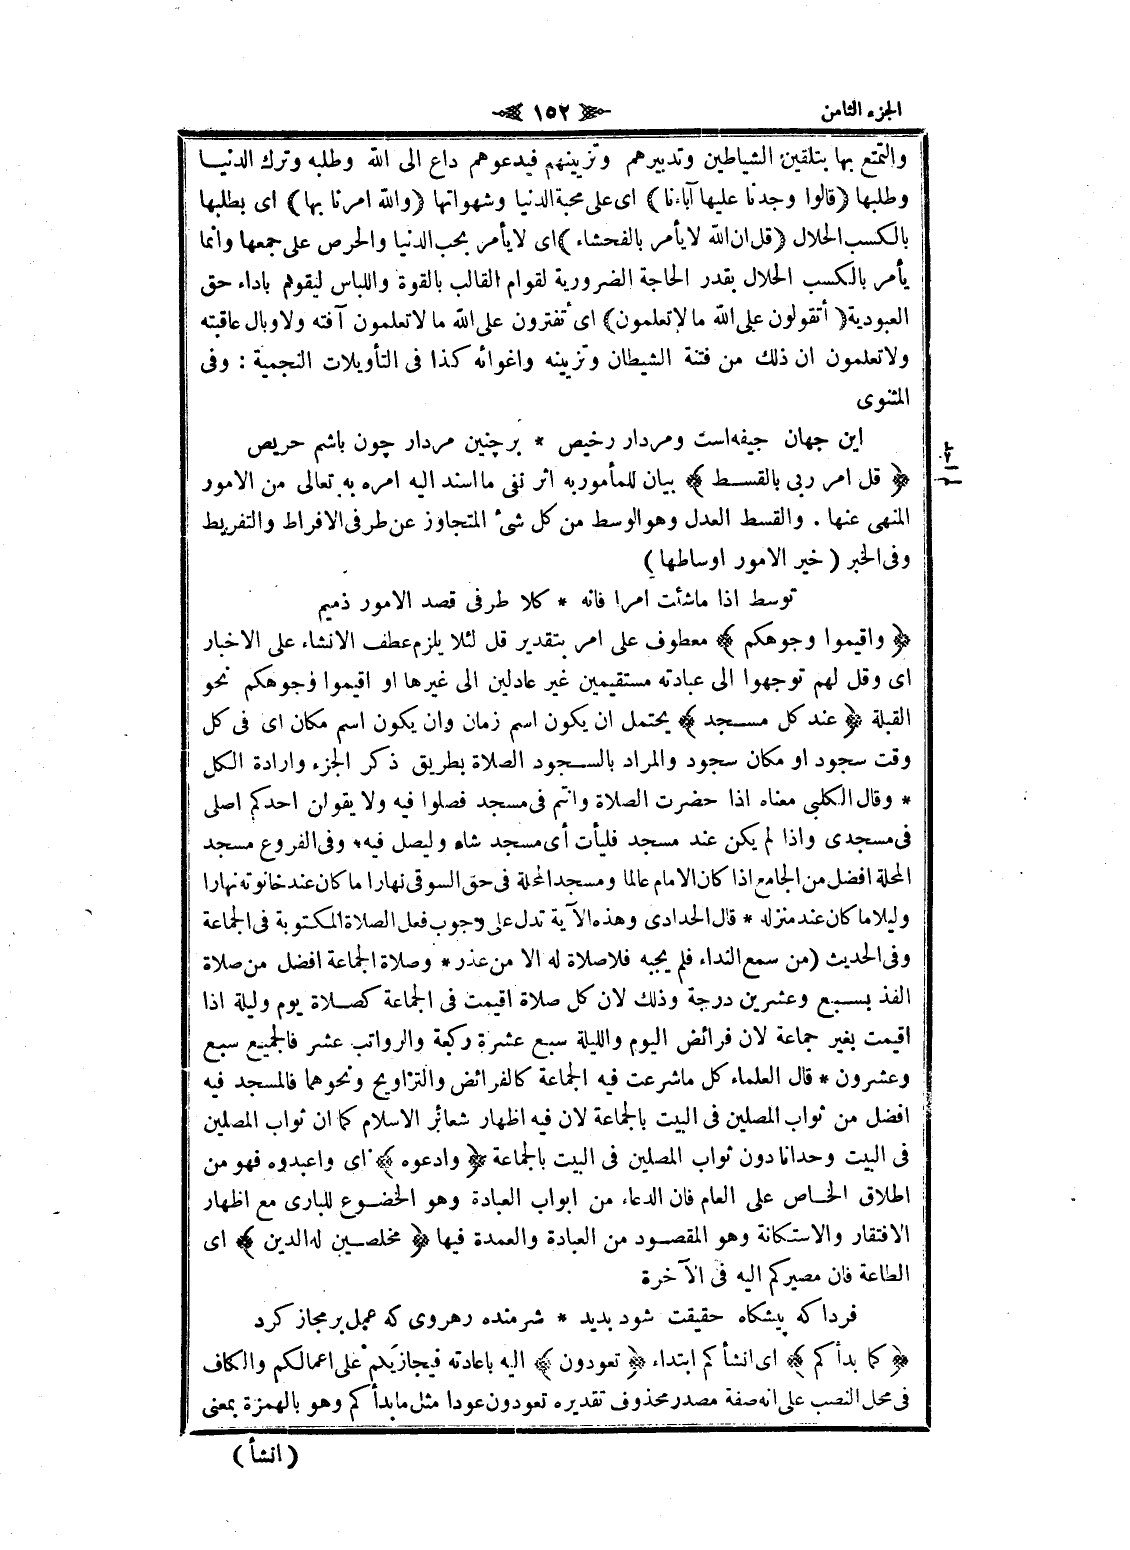 الجزء الثامن
١٥٢
والتمتع بها بتلقين الشياطين وتدبيرهم وتزيينهم فيدعوهم داع الى الله وطلبه وترك الدنيا
وطلبها (قالوا وجدنا عليها آباءنا) اى على محبة الدنيا وشهواتها (والله امرنا بها) اى بطلبها
بالكسب الحلال (قل ان الله لا يأمر بالفحشاء) اى لا يأمر بحب الدنيا والحرص على جمعها وانما
يأمر بالكسب الحلال بقدر الحاجة الضرورية لقوام القالب بالقوة واللباس ليقوم باداء حق
العبودية (أتقولون على الله مالا تعلمون) اى تفترون على الله مالا تعلمون آفته ولا وبال عاقبته
ولا تعلمون ان ذلك من فتنة الشيطان وتزيينه واغوائه كذا فى التأويلات النجمية : وفى
المثنوى
اين جهان جيفه است ومردار رخيص * بر چنين مردار چون باشم حريص
﴿ قل امر ربى بالقسط ﴾ بيان للمأمور به اثر نفى ما اسند اليه امره به تعالى من الامور
المنهى عنها . والقسط العدل وهو الوسط من كل شئ المتجاوز عن طرفى الافراط والتفريط
وفى الخبر ( خير الامور اوساطها )
توسط اذا ما شئت امرا فانه * كلا طرفى قصد الامور ذميم
﴿ واقيموا وجوهكم ﴾ معطوف على امر بتقدير قل لئلا يلزم عطف الانشاء على الاخبار
اى وقل لهم توجهوا الى عبادته مستقيمين غير عادلين الى غيرها او اقيموا وجوهكم نحو
القبلة ﴿ عند كل مسجد ﴾ يحتمل ان يكون اسم زمان وان يكون اسم مكان اى فى كل
وقت سجود او مكان سجود والمراد بالسجود الصلاة بطريق ذكر الجزء وارادة الكل
* وقال الكلبى معناه اذا حضرت الصلاة وانتم فى مسجد فصلوا فيه ولا يقولن احدكم اصلى
فى مسجدى واذا لم يكن عند مسجد فليأت أى مسجد شاء وليصل فيه * وفى الفروع مسجد
المحلة افضل من الجامع اذا كان الامام عالما ومسجد المحلة فى حق السوقى نهارا ما كان عند حانوته نهارا
وليلا ما كان عند منزله * قال الحدادى وهذه الآية تدل على وجوب فعل الصلاة المكتوبة فى الجماعة
وفى الحديث (من سمع النداء فلم يجبه فلا صلاة له الا من عذر * وصلاة الجماعة افضل من صلاة
الفذ بسبع وعشرين درجة وذلك لان كل صلاة اقيمت فى الجماعة كصلاة يوم وليلة اذا
اقيمت بغير جماعة لان فرائض اليوم والليلة سبع عشرة ركعة والرواتب عشر فالجميع سبع
وعشرون * قال العلماء كل ما شرعت فيه الجماعة كالفرائض والتراويح ونحوهما فالمسجد فيه
افضل من ثواب المصلين فى البيت بالجماعة لان فيه اظهار شعائر الاسلام كما ان ثواب المصلين
فى البيت وحدانا دون ثواب المصلين فى البيت بالجماعة ﴿ وادعوه ﴾ اى واعبدوه فهو من
اطلاق الخاص على العام فان الدعاء من ابواب العبادة وهو الخضوع للبارى مع اظهار
الافتقار والاستكانة وهو المقصود من العبادة والعمدة فيها ﴿ مخلصين له الدين ﴾ اى
الطاعة فان مصيركم اليه فى الآخرة
فردا كه پيشكاه حقيقت شود پديد * شرمنده رهروى كه عمل بر مجاز كرد
﴿ كما بدأكم ﴾ اى انشأكم ابتداء ﴿ تعودون ﴾ اليه باعادته فيجازيكم على اعمالكم والكاف
فى محل النصب على انه صفة مصدر محذوف تقديره تعودون عودا مثل ما بدأكم وهو بالهمزة بمعنى
( انشأ )